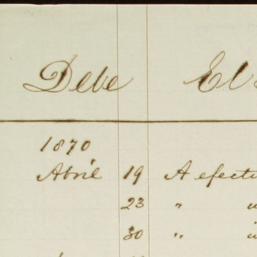 Debe El
1870
Abril 19 A efectu
23 "
30 "